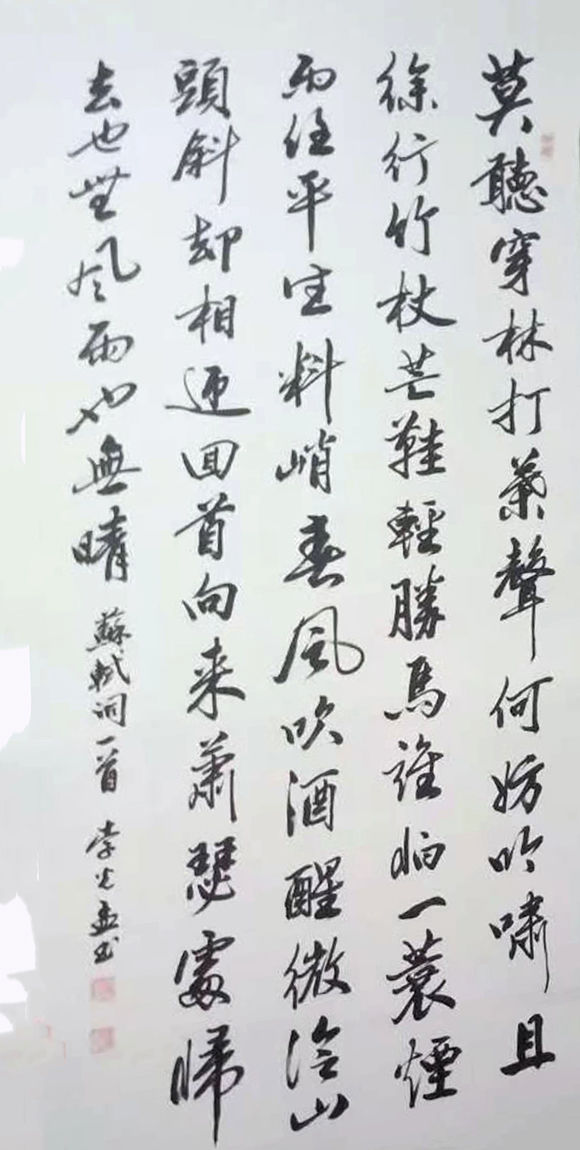 莫聽穿林打葉聲何妨吟嘯且
徐行竹杖芒鞋輕勝馬誰怕一蓑煙
雨任平生料峭春風吹酒醒微冷山
頭斜却相迎回首向来蕭瑟處歸
去也無風雨也無晴
蘇軾詞一首 李光